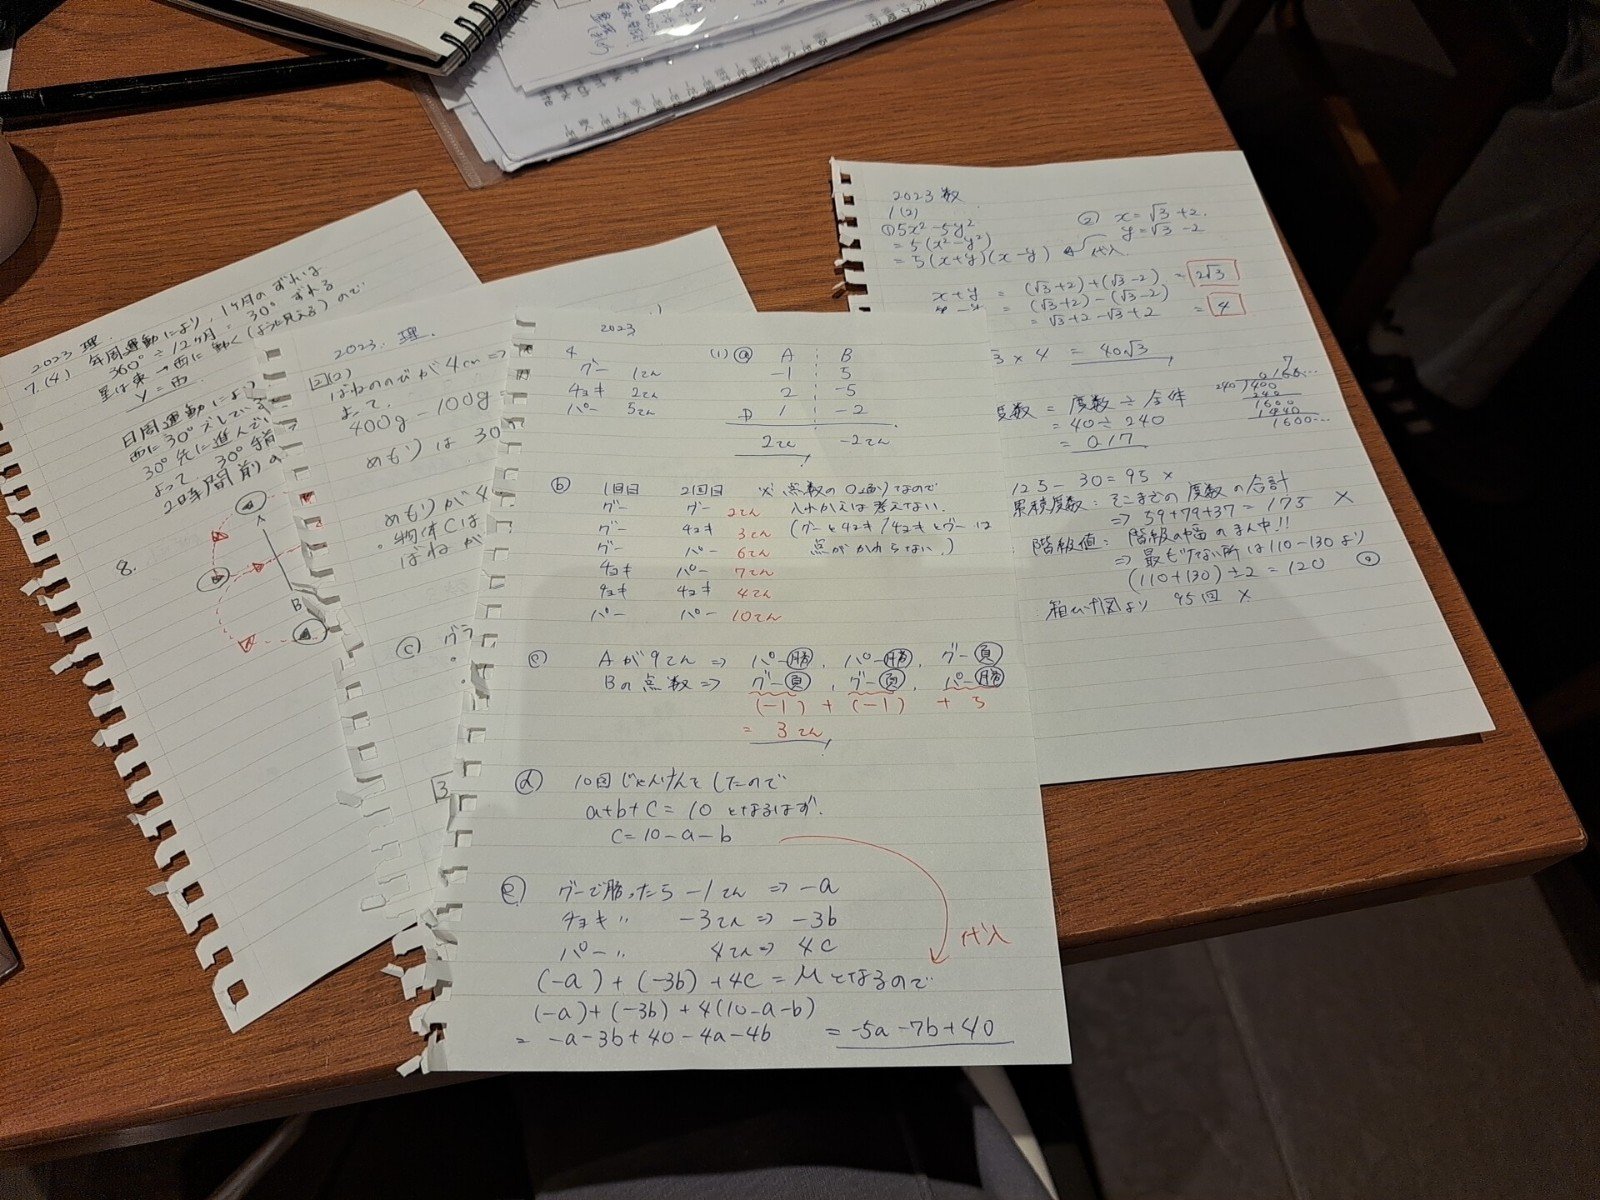 2023 理.
7.(4) 年周運動により、1ヶ月のずれは
360° ÷ 12ヶ月 = 30° ずれる
星は東→西に動く(ように見える)ので
Y = 西
日周運動により
西に30°ズレている
30°先に進んで
よって 30°手前
2時間前の
8.
A
B
2023. 理.
2(2)
ばねののびが4cm ⇒
よって、
400g - 100g
めもりは 30
めもりが4
・物体Cは
ばねが
(c) グラ
3
2023
4
グー 1てん
チョキ 2てん
パー 5てん
(1) ⓐ A B
-1 5
2 -5
1 -2
2てん -2てん
ⓑ 1回目 2回目 ※ 点数の
グー グー 2てん 入れかえは考えてない.
グー チョキ 3てん (グーとチョキ/チョキとグーは
グー パー 6てん 点がかわらない.)
チョキ パー 7てん
チョキ チョキ 4てん
パー パー 10てん
ⓒ Aが9てん ⇒ パー勝, パー勝, グー負
Bの点数 ⇒ グー負, グー負, パー勝
(-1) + (-1) + 5
= 3てん
ⓓ 10回じゃんけんをしたので
a+b+c = 10 となるはず.
c = 10-a-b
ⓔ グーで勝ったら -1てん ⇒ -a
チョキ 〃 -3てん ⇒ -3b
パー 〃 4てん ⇒ 4c
代入
(-a) + (-3b) + 4c = M となるので
(-a) + (-3b) + 4(10-a-b)
= -a-3b+40-4a-4b = -5a-7b+40
2023 数
1(2)
① 5x²-5y²
= 5(x²-y²)
= 5(x+y)(x-y) 代入
② x = √3+2.
y = √3-2
x+y = (√3+2)+(√3-2) = 2√3
(√3+2)-(√3-2)
= √3+2-√3+2 = 4
3 × 4 = 40√3
度数 = 度数 ÷ 全体
= 40 ÷ 240
= 0.17
7
0.166...
240)400
240
1600
1440
1600...
125 - 30 = 95 ×
累積度数: そこまでの度数の合計
⇒ 59+79+37 = 175 ×
階級値: 階級の幅のまん中!!
⇒ 最も少ない所は110-130より
(110+130)÷2 = 120
箱ひげ図より 95回 ×